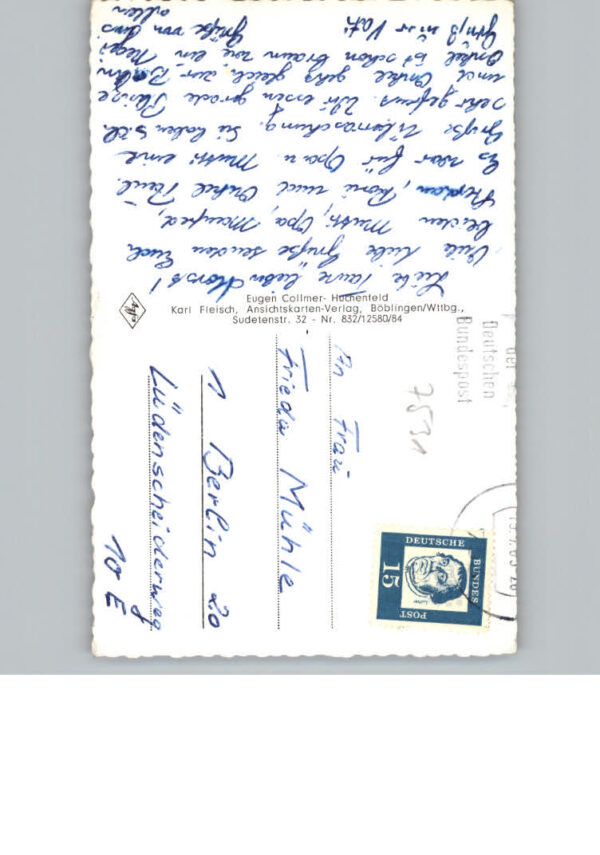 Liebe Tante, lieber Horst!
Viele liebe Grüße senden Euch
beiden Mutti, Opa, Manfred,
und Onkel Paul.
Es war für Opa u. Mutti eine
Große Überraschung. Sie haben sich
sehr gefreut. Wir essen grade
und Onkel geht gleich zur
Onkel ist schon braun wie ein Neger
Grüße von uns
allen
Eugen Collmer- Huchenfeld
Karl Fleisch, Ansichtskarten-Verlag, Böblingen/Wttbg.,
Sudetenstr. 32 - Nr. 832/12580/84
Agfa
der
Deutschen
Bundespost
7531
An Frau
Frieda Mühle
1 Berlin 20
Lüdenscheiderweg
10 E
DEUTSCHE
BUNDES
POST
15
Luther